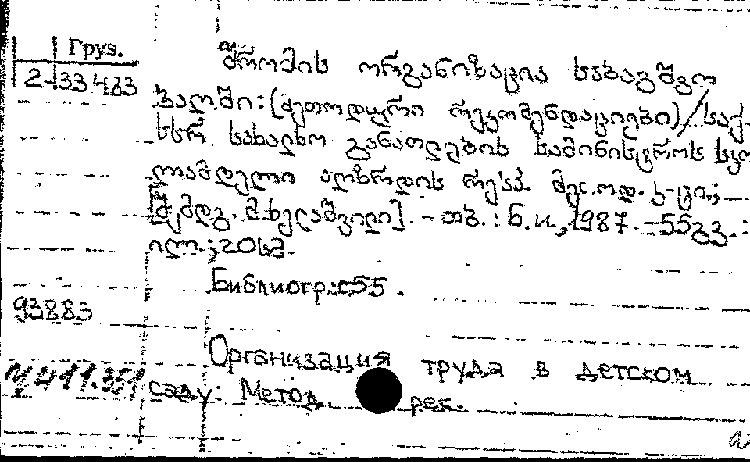 Груз.
2-33483
შრომის ორგანიზაცია საბავშვო
ბაღში: (მეთოდური რეკომენდაციები) / საქ.
სსრ სახალხო განათლების სამინისტროს სკო-
ლამდელი აღზრდის რესპ. მეც.ოდ. კ-ტი;
[შემდგ. მ. ხელაშვილი]. - თბ.: ბ.ი., 1987. - 55გვ.:
ილ.; 20სმ.
Библиогр.: с55.
93883
Организация труда в детском
саду: Метод. рек.